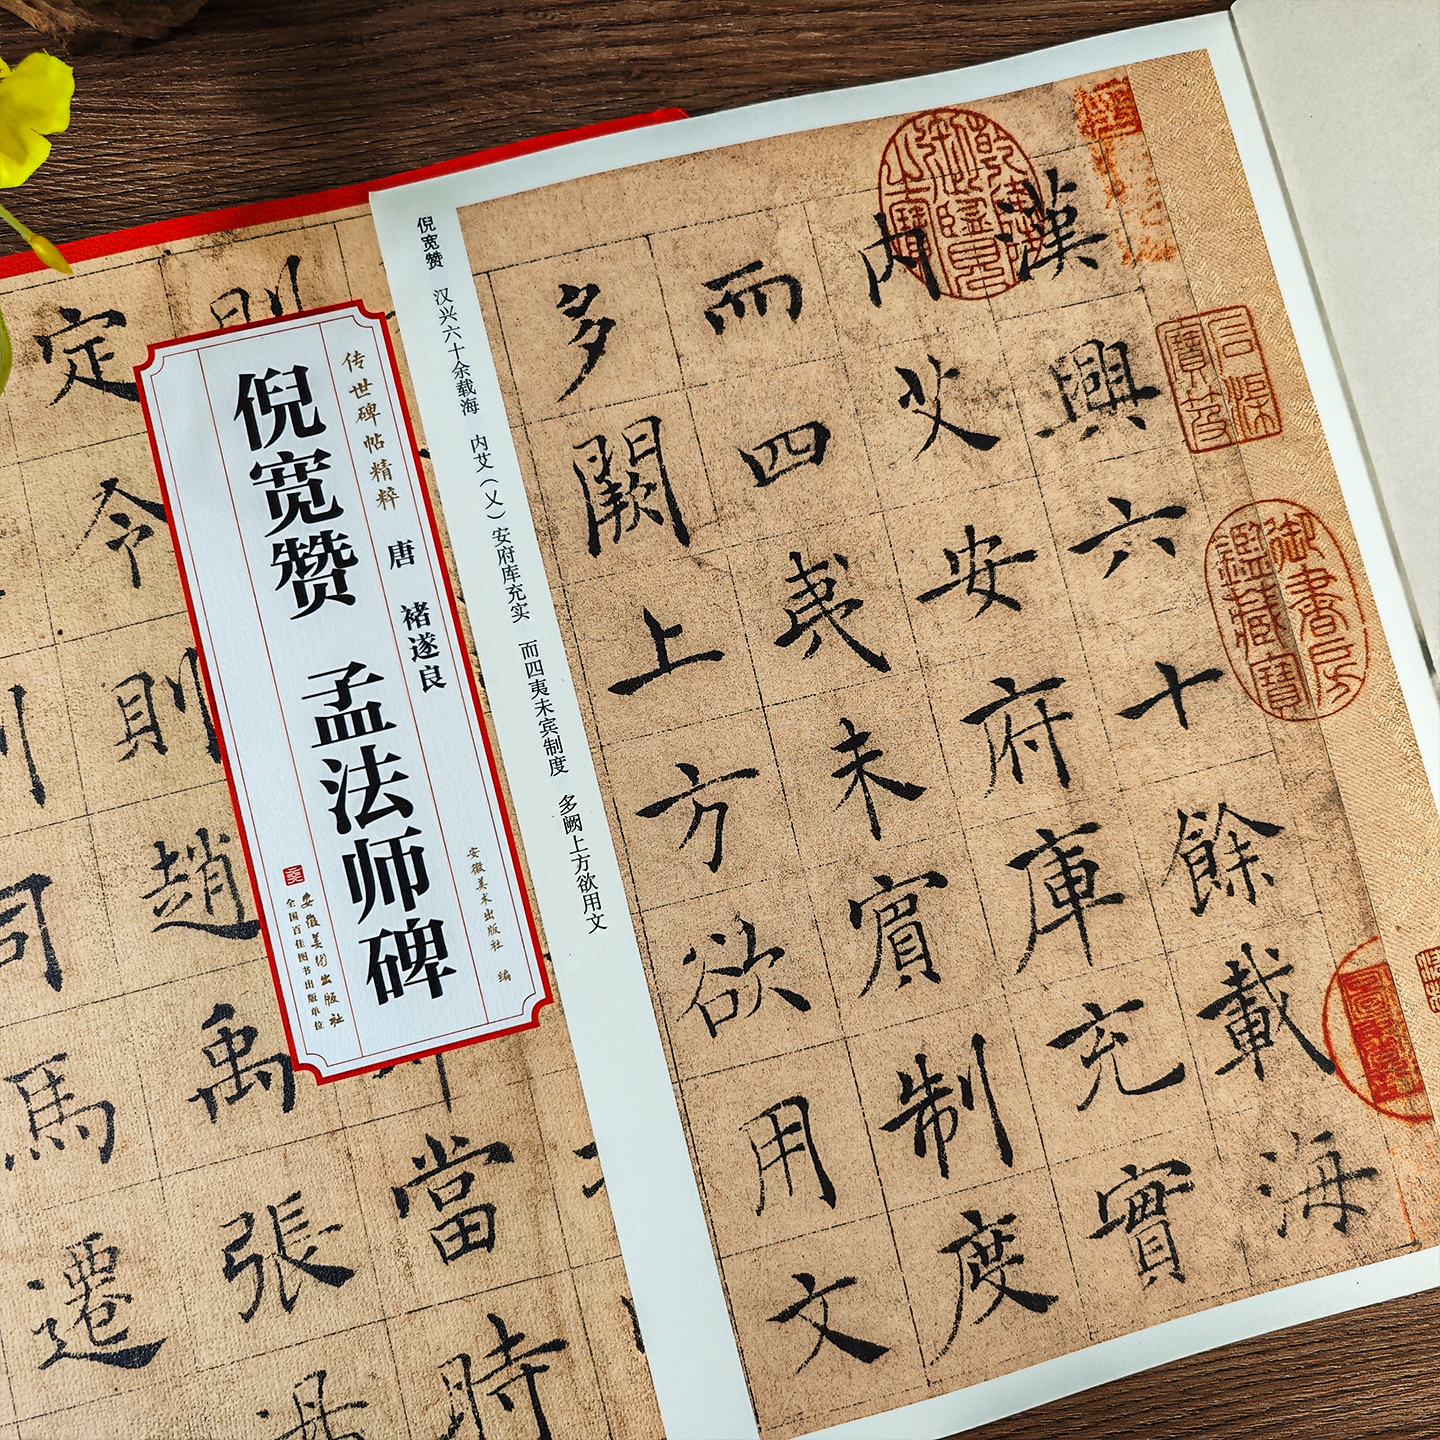 漢興六十餘載海
内艾安府庫充實
而四夷未賓制度
多闕上方欲用文
倪宽赞 汉兴六十余载海 内艾（乂）安府库充实 而四夷未宾制度 多阙上方欲用文
传世碑帖精粹
唐 褚遂良
安徽美术出版社 编
倪宽赞 孟法师碑
安徽美术出版社
全国百佳图书出版单位
當
時
則
則
趙
禹
張
湯
定
令
馬
遷
御書房鑑藏寶